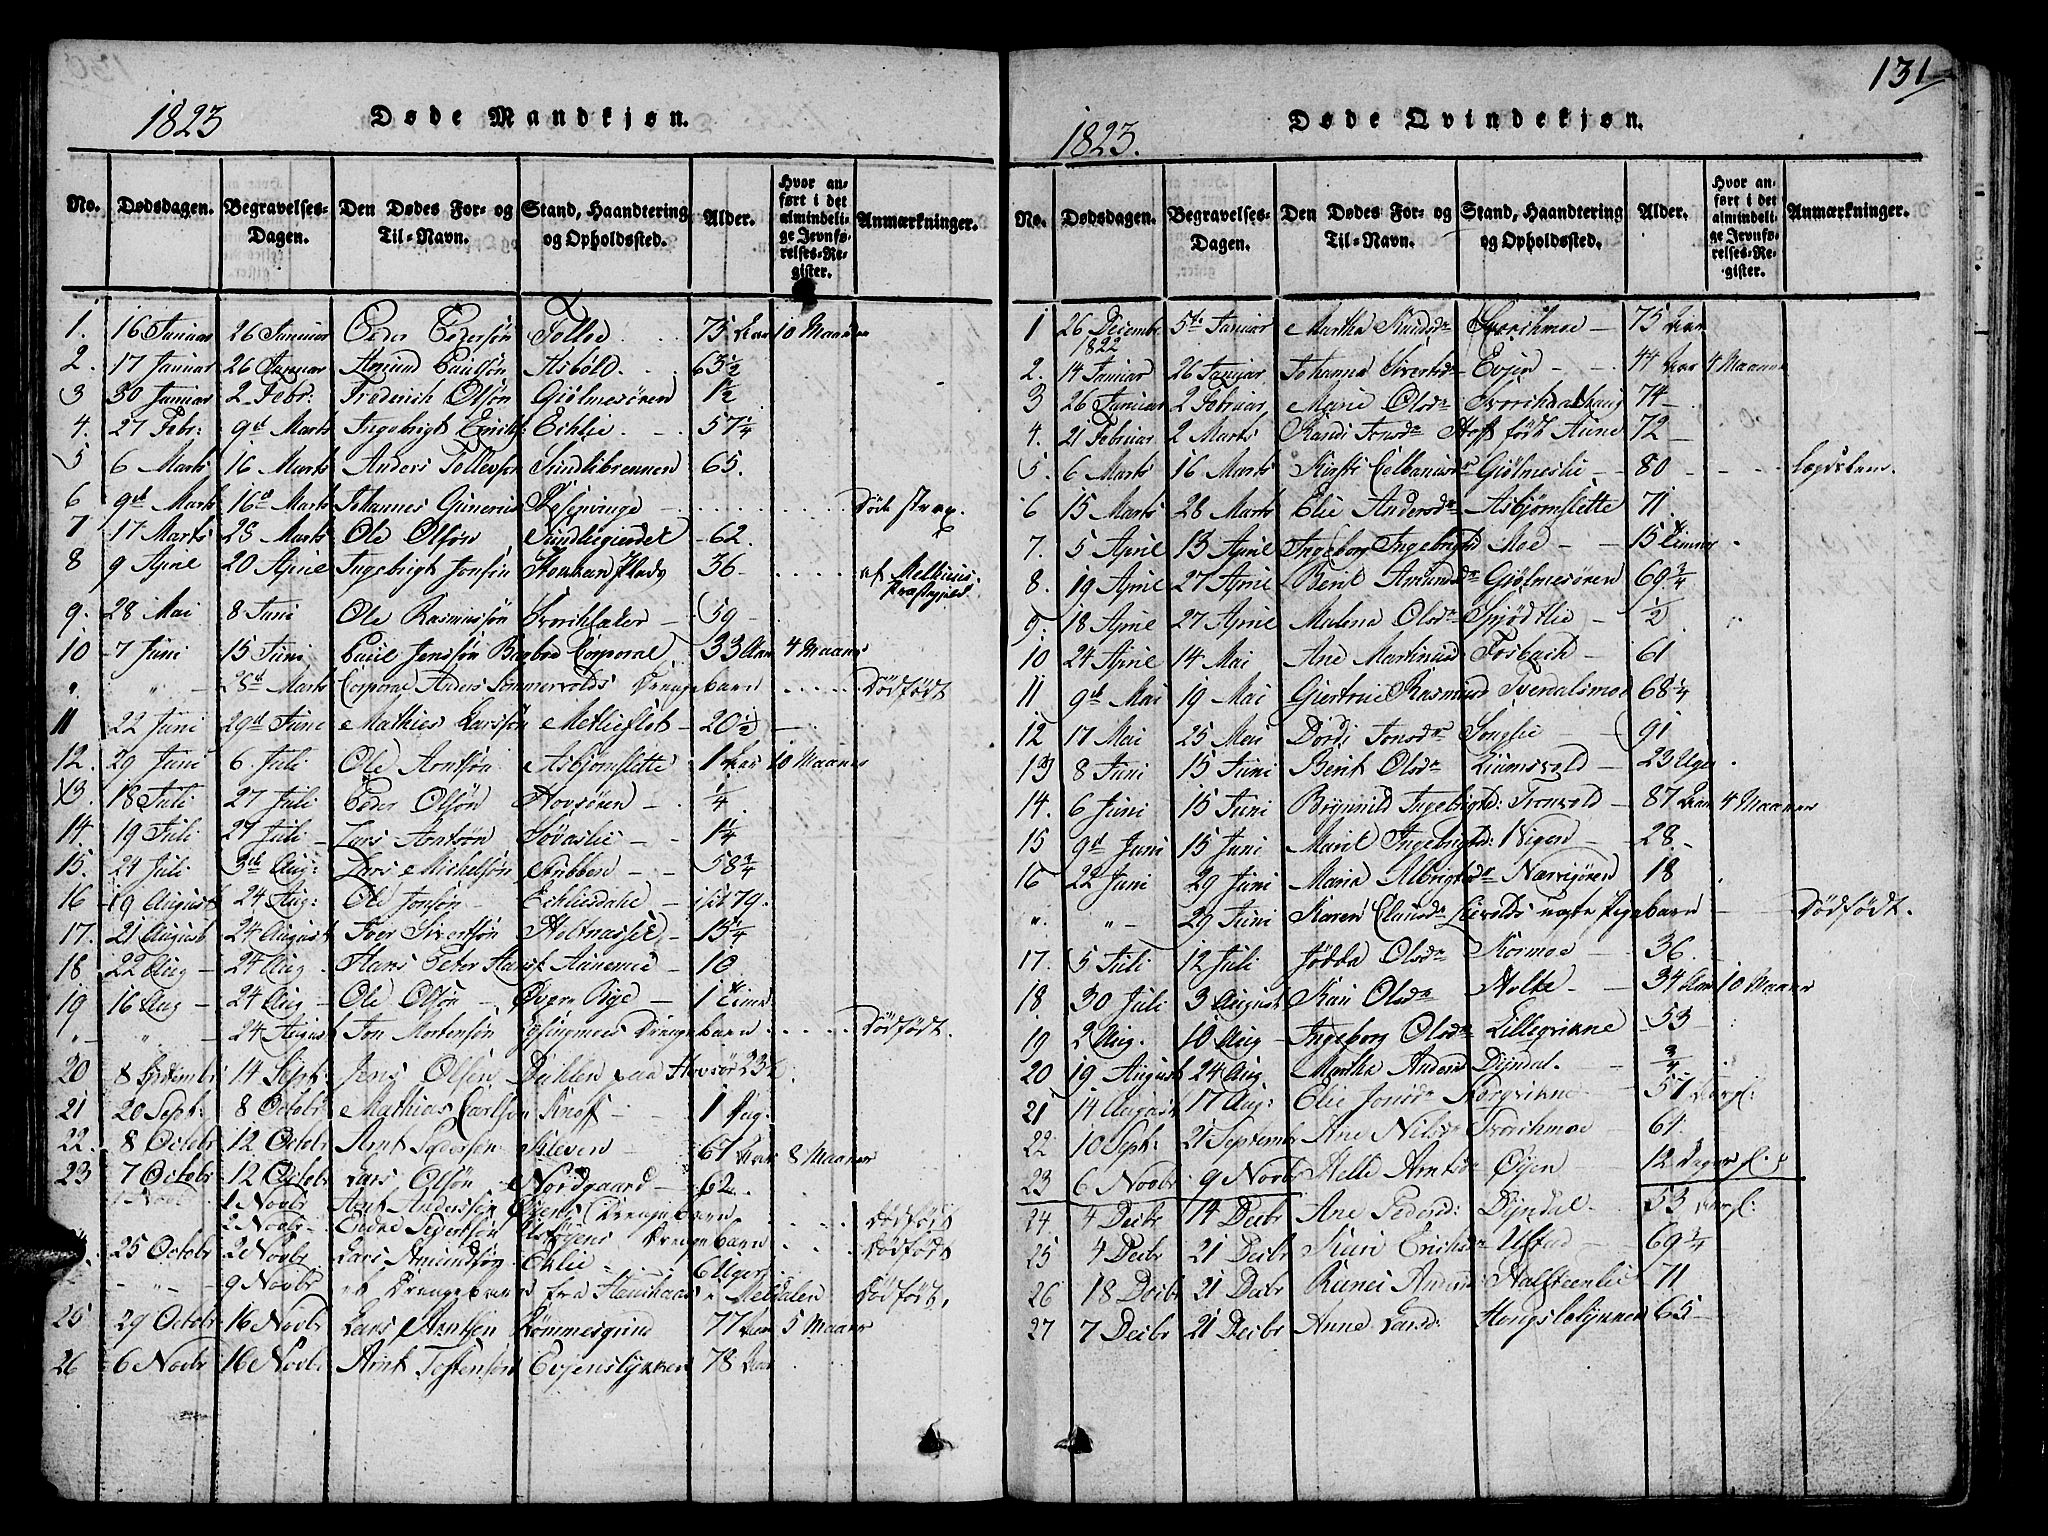 1823 Døde Mandkjøn.
No. Dødsdagen. Begravelses-Dagen. Den Dødes For- og Til-Navn. Stand, Haandtering og Opholdssted. Alder. Hvor anført i det almindelige Jevnførelses-Register. Anmærkninger.
1. 16 Januar 26 Januar Peder Pedersøn 75 Aar 10 Maaner
2. 17 Januar 26 Januar Amund Paulsøn Asbøld 63½
3 30 Januar 2 Febr: Frederich Olsøn Giølmesøren 1½
4. 27 Febr: 9d Marts Ingebrigt Erichs: Echlie 57¼
5 6 Marts 16 Marts Anders Tollevsen 65.
6 9d Marts 16d Marts Johannes
7 17 Marts 28 Marts Ole Olsøn 62.
8 9 Aprile 20 Aprile Ingebrigt Jonsøn 36 af
9. 28 Mai 8 Juni Ole Rasmussøn 59
10 7 Juni 15 Juni Paul Jenssøn Corporal 33 Aar 4 Maaner
" " 28d Marts Corporal Anders Sommervolds Drengebarn Dødfødt
11 22 Juni 29d Juni Mathies Larssøn Metlieflot 20½
12. 29 Juni 6 Juli Ole Arntsøn Asbjørnslette 1 Aar 10 Maaner
13. 18 Juli 27 Juli Peder Olsøn Hovsøren ¼
14. 19 Juli 27 Juli Lars Arntsøn 1¼
15. 24 Juli 3de Aug: Lars Michelsøn Stubben 58¾
16 19 August 24 Aug: Ole Jonsøn Echliesdahl 79.
17. 21 August 24 August Iver Sivertsøn 15¼
18 22 Aug 24 Aug Hans Peter Hans: 10
19 16 Aug 24 Aug Ole Olsøn Øvern Bye 1
" " 24 August Jon Mortensøn Drengebarn Dødfødt.
20 8 Septembr 14 Sept: Jens Olsøn Dahlen paa
21 20 Sept: 8 Octobr Mathias Carlsøn Knoff 1 Dag.
22. 8 Octobr 12 Octobr Arnt Pedersøn Kleven 67 Aar 8 Maaner
23 7 Octobr 12 Octobr Lars Olsøn Nordgaard 62
1 Novbr Arnt Andersøn Øyens Drengebarn Dødfødt
2 Novbr Peder Sivertsøn Drengebarn Dødfødt
25 Octobr 2 Novbr Lars Amundsøn Echlie 6 Uger
" 9 Novbr et Drengebarn fra i Meldalen Dødfødt.
25 29 Octobr 16 Novbr Lars Arntsøn Rømmesgrind 77 Aar 5 Maaner
26 6 Novbr 16 Novbr Arnt Tostensøn Evjenslykken 78 Aar
131
1823. Døde Qvindekjøn.
No. Dødsdagen. Begravelses-Dagen. Den Dødes For- og Til-Navn. Stand, Haandtering og Opholdssted. Alder. Hvor anført i det almindelige Jevnførelses-Register. Anmærkninger.
1 26 Decembr 1822 5te Januar Martha Knudsdr Svorchmoe 75 Aar
2. 14 Januar 26 Januar Johanna Sivertsdr Evjen 44 Aar 4 Maaner
3 26 Januar 2 Februar Marie Olsdr 74
4. 21 Februar 2 Marts Randi Jonsdr Hoff født Aune 72
5. 6 Marts 16 Marts Giølmeslie 80 Lægdslem.
6 15 Marts 28 Marts Elie Andersdr Asbjørnslette 71.
7. 5 Aprile 13 Aprile Ingeborg Ingebrigtsd Moe 15 Timer
8. 19 Aprile 27 Aprile Berit Amundsdr Giølmesøren 69¾
9. 18 Aprile 27 Aprile Malena Olsdr ½
10 24 Aprile 14 Mai Ane Martinusd Fosbach 61
11 9d Mai 19 Mai Giertrue Rasmusd Svendalsmoe 68¼
12 17 Mai 25 Mai Dordi Jonsdr Songlie 91
13 8 Juni 15 Juni Berit Olsdr 23 Uger
14. 6 Juni 15 Juni Brynild Ingebrigtd: Tronvold 87 Aar 4 Maaner
15 9d Juni 15 Juni Marit Ingebrigtd: 28.
16 22 Juni 29 Juni Maria Albrigtsdr 18
" " 29 Juni Karen Clausdr Pigebarn Dødfødt.
17. 5 Juli 12 Juli Jødda Olsdr Kormoe 36
18 30 Juli 3 August Kari Olsdr Holte 34 Aar 10 Maaner
19 2 Aug. 10 Aug Ingeborg Olsdr Lillegvikne 53
20 19 August 24 Aug Martha Andersd Dyndal ¾
21 14 August 17 Aug: Elie Jonsdr 57
22 10 Sept: 21 Septembr Ane Nilsdr Svorchmoe 61.
23 6 Novbr 9 Novbr Arntsdr Øyen 12 Dage
24. 4 Decbr 14 Decbr Ane Pedersd: Dyndal 53
25 4 Decbr 21 Decbr Kari Erichsdr Ustad 69¾
26 18 Decbr 21 Decbr Andersd Halsteenlie 71
27 7 Decbr 21 Decbr Anne Larsd: Hongslolykken 65